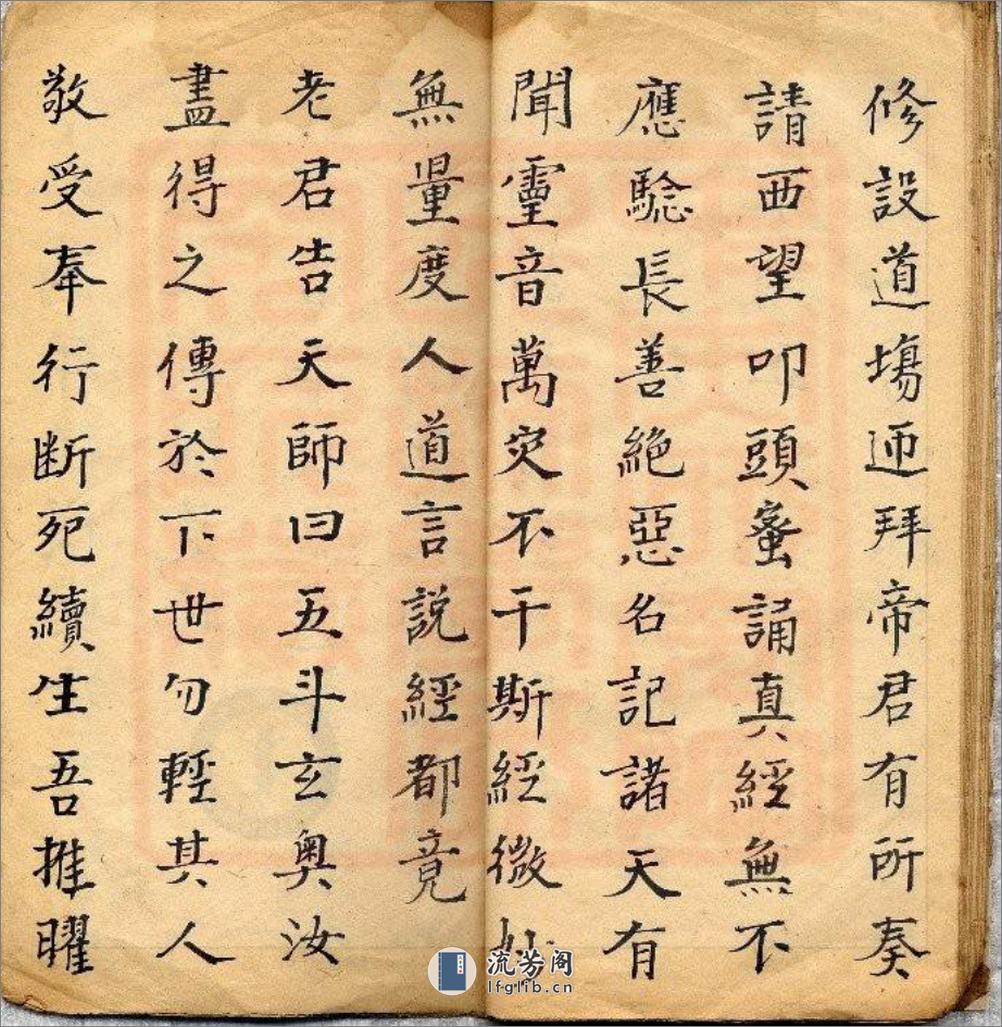 修設道塲迊拜帝君有所奏
請西望叩頭蜜誦真經無不
應騐長善絶惡名記諸天有
聞靈音萬灾不干斯經微妙
無量度人道言說經都竟
老君告天師曰五斗玄奧汝
盡得之傳於下世勿輕其人
敬受奉行断死續生吾推曜
流芳阁
lfglib.cn